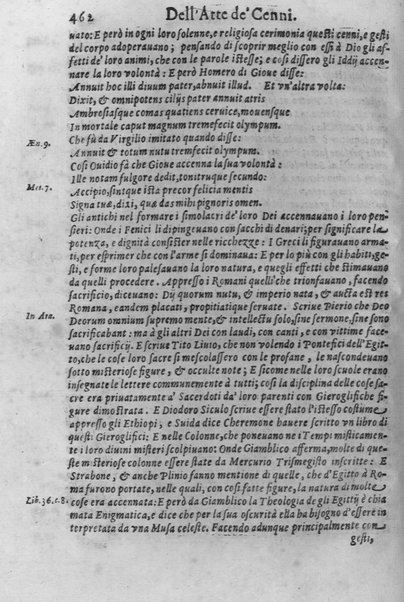 462 Dell'Arte de' Cenni.
uato: E però in ogni loro solenne, e religiosa cerimonia questi cenni, e gesti
del corpo adoperauano; pensando di scoprir meglio con essi à Dio gli af-
fetti de' loro animi, che con le parole istesse; e così dissero gli Iddij accen-
nare la loro volontà: E però Homero di Gioue disse:
Annuit hoc illi diuum pater, abnuit illud. Et vn'altra volta:
Dixit, & omnipotens cilijs pater annuit atris
Ambrosiasque comas quatiens ceruice, mouensque
In mortale caput magnum tremefecit olympum.
Che fù da Virgilio imitato quando disse:
Æn. 9. Annuit & totum nutu tremfecit olympum.
Così Ouidio fà che Gioue accenna la sua volontà:
Ille notam fulgore dedit, tonitruque secundo:
Met. 7. Accipio, sintque ista precor felicia mentis
Signa tuæ, dixi, quæ das mihi pignoris omen.
Gli antichi nel formare i simolacri de' loro Dei accennauano i loro pen-
sieri: Onde i Fenici li dipingeuano con sacchi di denari; per significare la
potenza, e dignità consister nelle ricchezze: I Greci li figurauano arma-
ti, per esprimer che con l'arme si dominaua: E per lo più con gli habiti, ge-
sti, e forme palesauano la loro natura, e quegli effetti che stimauano
da quelli procedere. Appresso i Romani quelli che trionfauano, facendo
sacrificio, diceuano: Dij quorum nutu, & imperio nata, & aucta est res
Romana, eandem placati, propitiatique seruate. Scriue Pierio che Deo
In Ara. Deorum omnium supremo mente, & intellectu solo, sine sermone, sine sono
sacrificabant: ma à gli altri Dei con laudi, con canti, e con vittime face-
uano sacrificij. E scriue Tito Liuio, che non volendo i Pontefici dell'Egit-
to, che le cose loro sacre si mescolassero con le profane, le nascondeuano
sotto misteriose figure, & occulte note; E sicome nelle loro scuole erano
insegnate le lettere communemente à tutti; così la disciplina delle cose sa-
cre era priuatamente a' Sacerdoti da' loro parenti con Gieroglifiche fi-
gure dimostrata. E Diodoro Siculo scriue essere stato l'istesso costume
appresso gli Ethiopi, e Suida dice Cheremone hauere scritto vn libro di
questi Gieroglifici: E nelle Colonne, che poneuano ne i Tempi misticamen-
te i loro diuini misteri scolpiuano: Onde Giamblico afferma, molte di que-
ste misteriose colonne essere state da Mercurio Trismegisto inscritte: E
Strabone, & anche Plinio fanno mentione di quelle, che d'Egitto à Ro-
ma furono portate, nelle quali, con così fatte figure, la natura di molte
Lib. 36. c. 8. cose era accennata: E però da Giamblico la Theologia de gli Egittij è chia
mata Enigmatica, e dice che per la sua oscurità ella ha bisogno d'essere in
terpretata da vna Musa celeste. Facendo adunque principalmente con
gesti,